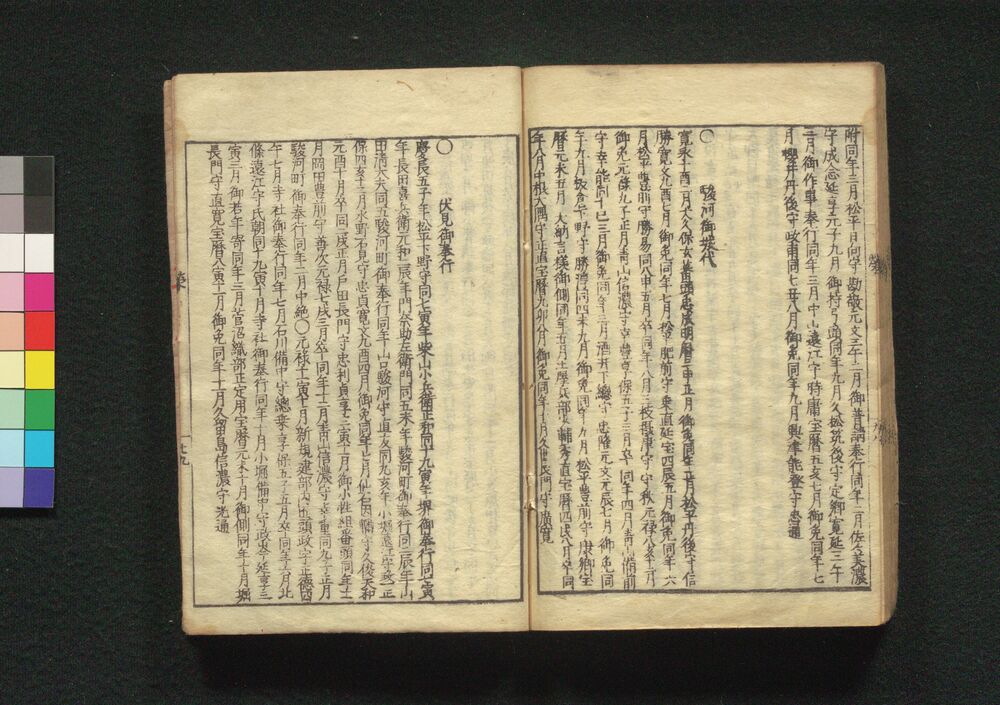 附同年三月松平日向守勘敬元文三午二月御普請奉行同年二月佐久美濃
守成念延享元子九月御持弓頭同年九月久松筑後守定郷寛延三午
二月御作事奉行同年三月中山遠江守時庸宝暦五亥七月御免同年七
月櫻井丹後守政甫同七丑八月御免同年九月興津能登守忠通
〇駿河御城代
寛永十酉二月大久保玄蕃頭忠成明暦二申正月御免同年正月松平丹後守信
勝寛文九酉七月御免同年七月松平肥前守乗直延宝四辰五月御免同年六
月松平豊前守勝易同八申五月卒同年八月三枝摂津守守秋元禄八亥十二月
御免元禄九子正月青山信濃守幸豊享保五子三月卒同年四月青山備前
守幸能同十巳三月御免同年三月酒井下総守忠隆元文元辰七月御免同
年九月板倉下野守勝澄同四未九月御免同年九月松平豊前守康郷宝
暦元未五月大納言様御側同年五月土屋兵部少輔秀直宝暦四戌八月卒同
年八月中根大隅守正直宝暦九卯八月御免同年十月久世長門守廣寛
〇伏見御奉行
慶長五子年松平下野守同七寅年柴山小兵衛正和同十九寅年堺御奉行同七寅
年長田喜兵衛元和二辰年門奈助左衛門同五未年駿河町御奉行同二辰年山
田清大夫同五駿河町御奉行同年山口駿河守直友同九亥年小堀遠江守政一正
保四亥十二月水野石見守忠貞寛文九酉四月御免同年七月仙石因幡守久俊天和
元酉十月卒同二戌正月戸田長門守忠利貞享三寅十月御小性組番頭同年十二
月岡田豊前守善次元禄七戌三月卒同年十二月青山信濃守幸重同九子正月
駿河町御奉行同年二月中絶〇元禄十一寅十月新規建部内匠頭政宇正徳四
午七月寺社御奉行同年七月石川備中守総乗享保五子五月卒同年六月北
條遠江守氏朝同十九寅十月寺社御奉行同年十月小堀備中守政峯延享三
寅三月御若年寄同年三月菅沼織部正定用宝暦元未十月御側同年十月堀
長門守直寛宝暦八寅十月御免同年十月久留島信濃守光通
一七九